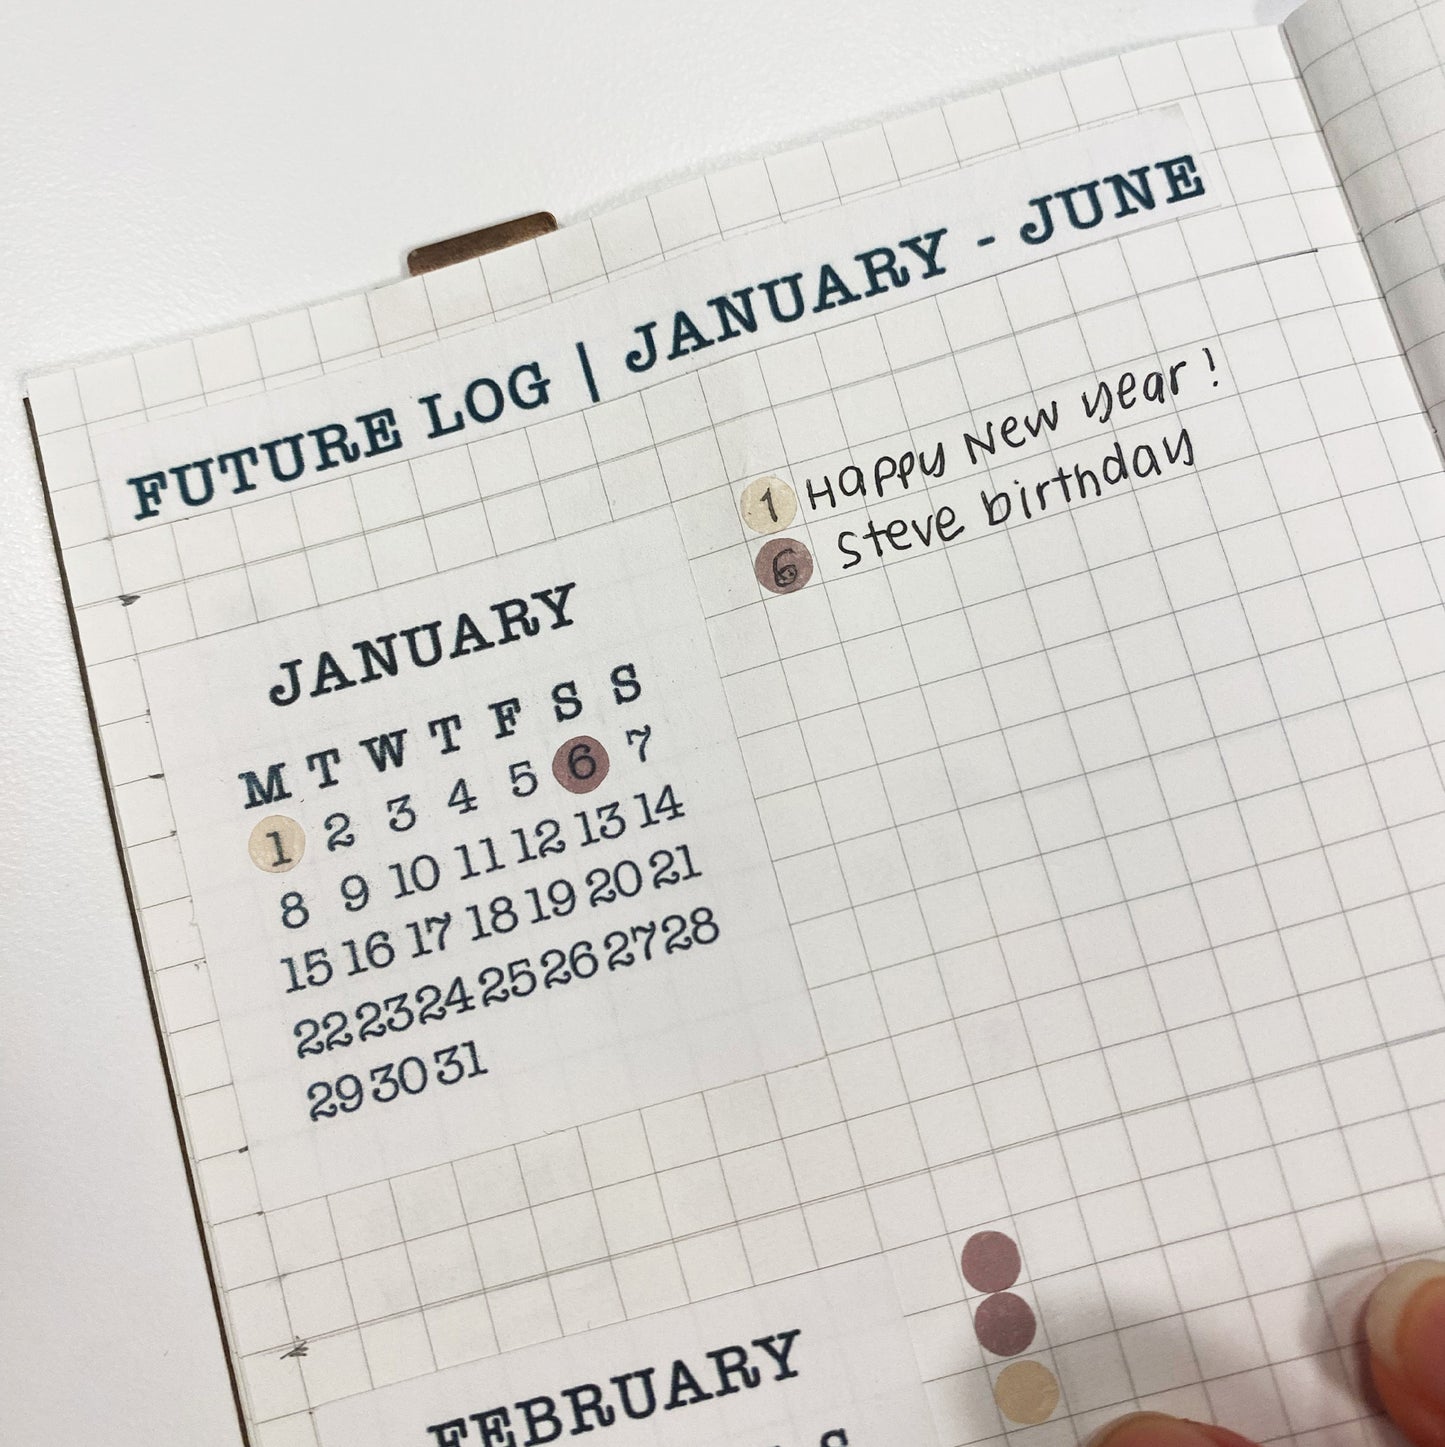 FUTURE LOG | JANUARY - JUNE
JANUARY
M T W T F S S
1 2 3 4 5 6 7
8 9 10 11 12 13 14
15 16 17 18 19 20 21
22 23 24 25 26 27 28
29 30 31
1 Happy New year!
6 Steve birthday
FEBRUARY
S